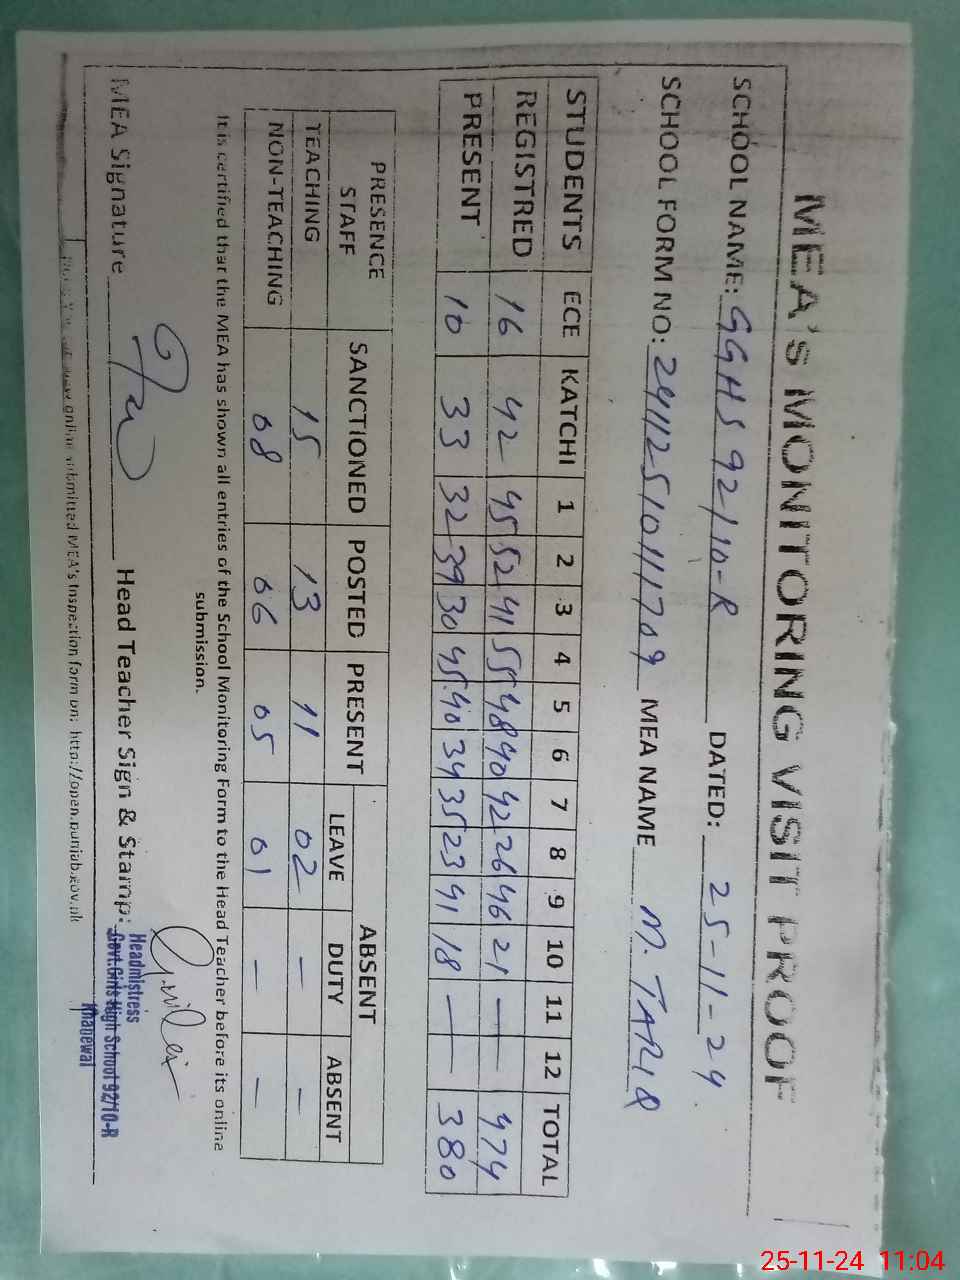 MEA's MONITORING VISIT PROOF
SCHOOL NAME: GGHS 92/10-R DATED: 25-11-24
SCHOOL FORM NO: 2411251011709 MEA NAME M. TARIQ
STUDENTS ECE KATCHI 1 2 3 4 5 6 7 8 9 10 11 12 TOTAL
REGISTRED 16 42 45 52 41 55 48 40 42 26 46 21 — — 474
PRESENT 10 33 32 39 30 45 40 34 35 23 41 18 — — 380
PRESENCE STAFF SANCTIONED POSTED PRESENT ABSENT
LEAVE DUTY ABSENT
TEACHING 15 13 11 02 — —
NON-TEACHING 08 06 05 01 — —
It is certified that the MEA has shown all entries of the School Monitoring Form to the Head Teacher before its online
submission.
MEA Signature Head Teacher Sign & Stamp:
Headmistress
Govt.Girls High School 92/10-R
Khanewal
online submitted MEA's Inspection form on: http://open.punjab.gov.pk
25-11-24 11:04